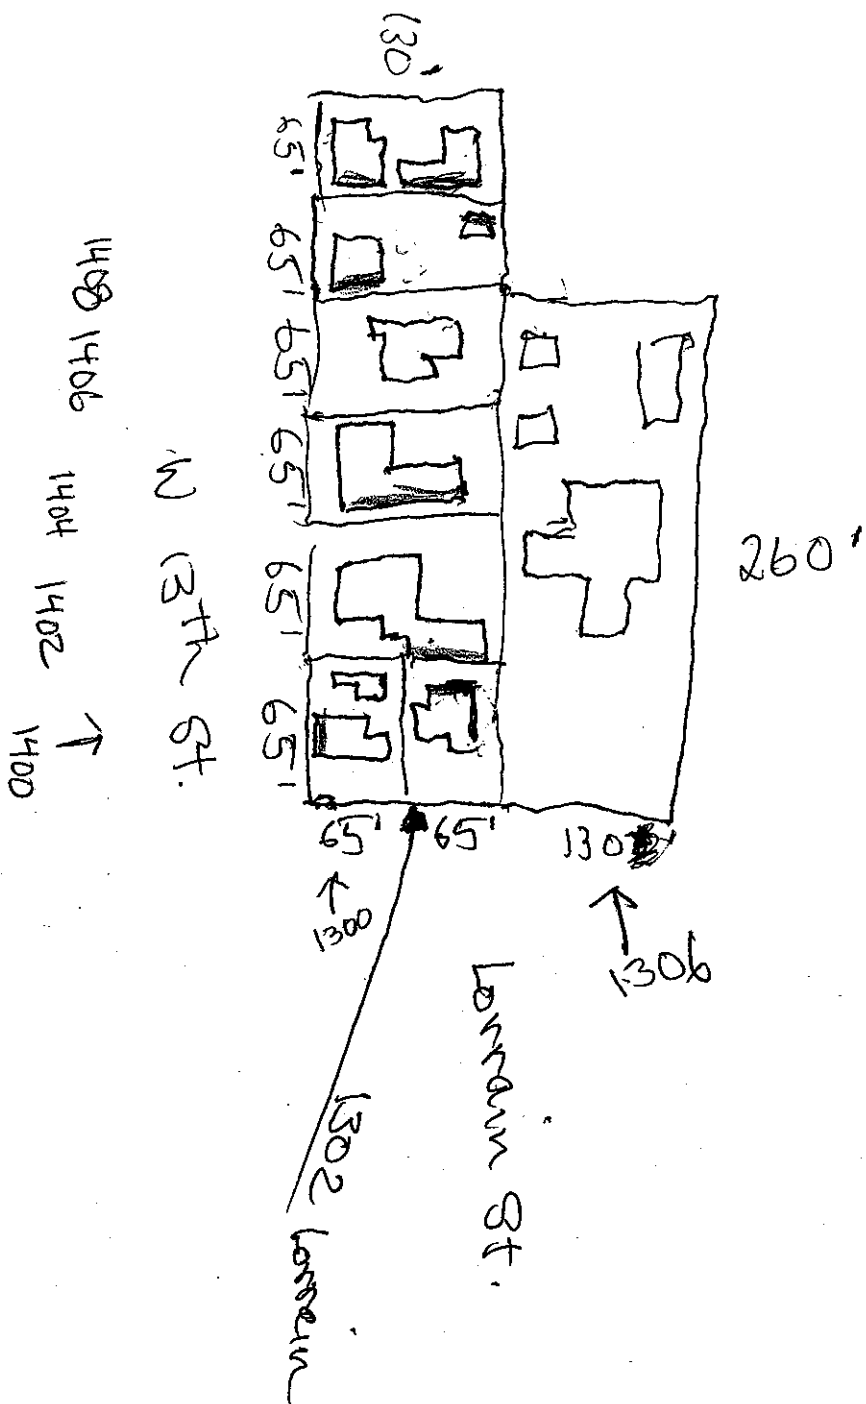 130'
65'
65'
65'
65'
65'
65'
1408 1406 1404 1402 1400
↑
W 13th St.
260'
65'
65'
130
↑
1300
↑
1306
Lorrain St.
1302 Lorrein